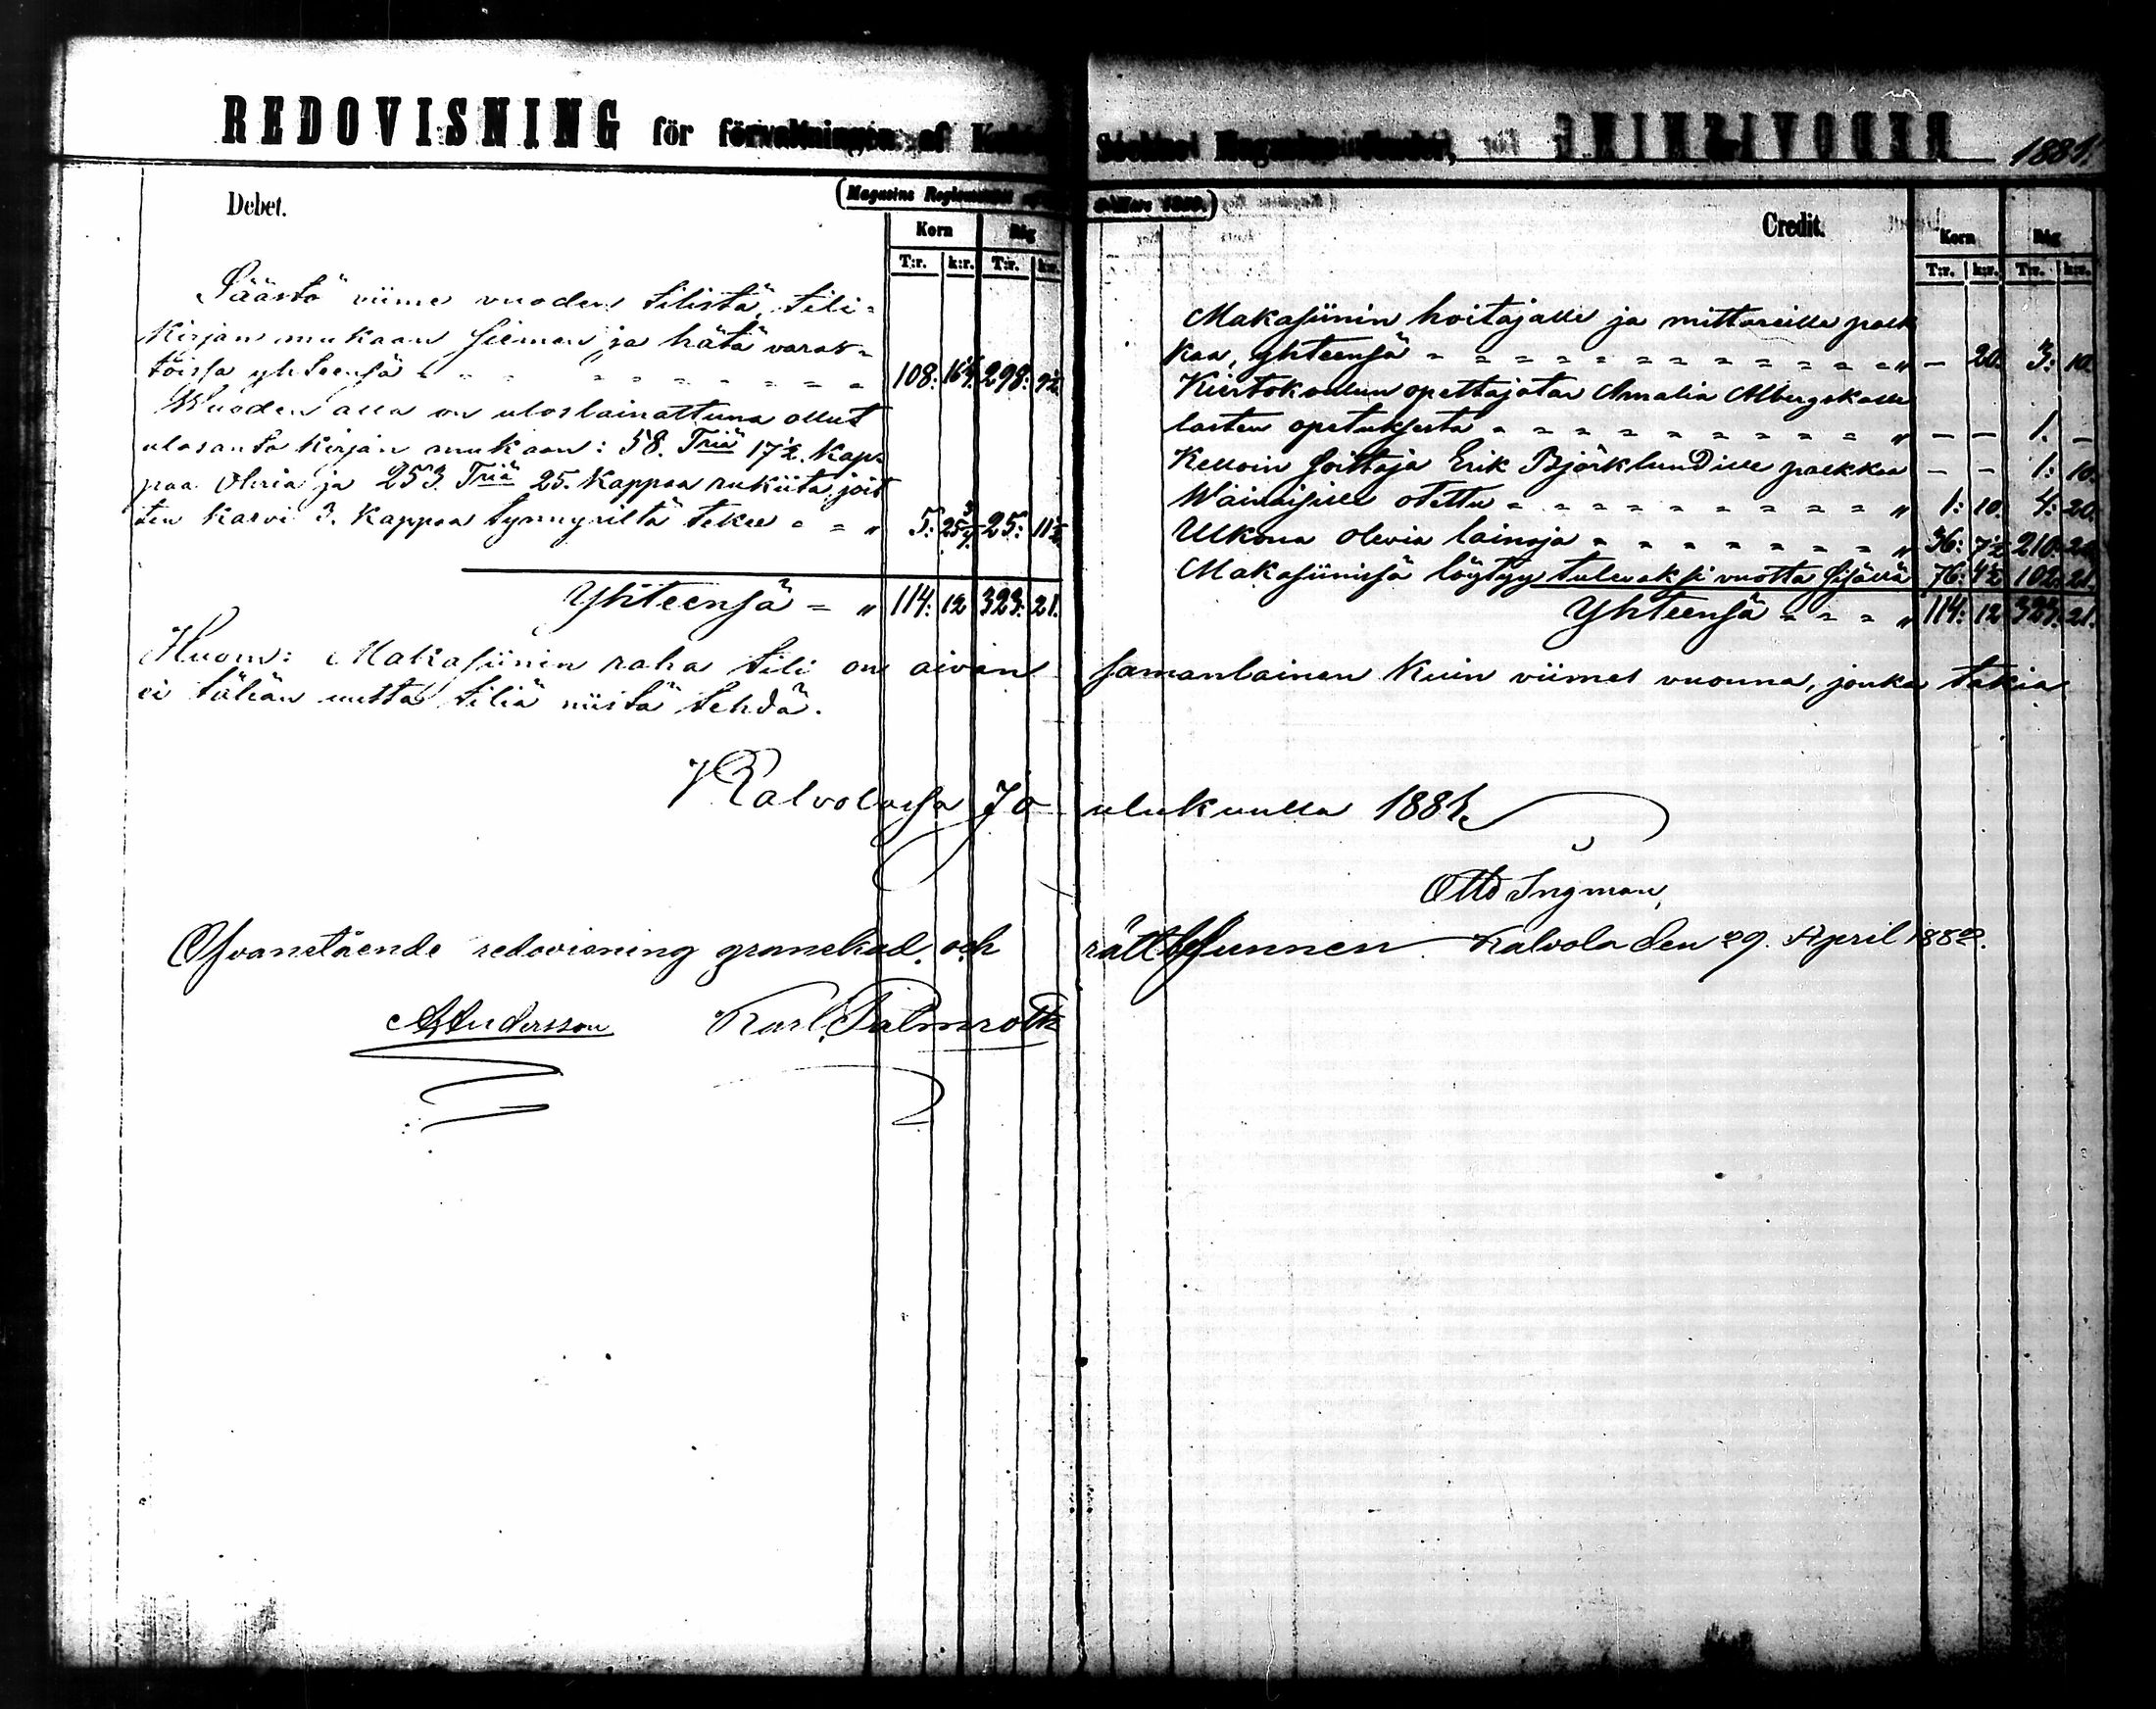 REDOVISNING för förvaltningen af
Sockens Magasins fonder, 1881.
(Magasins Reglementet
Mars 1859.)
Debet.
Korn Råg
T:r. k:r. T:r. k:r.
Säästö viime vuoden tilistä, tili-
kirjan mukaan siemen ja hätä varas-
toissa yhteensä 108: 16¼ 298: 9½
Wuoden alla on uloslainattuna ollut
ulosanto kirjan mukaan: 58. Triä 17½ Kap-
paa Ohria ja 253. Triä 25. Kappaa rukiita, joit
ten kasvi 3. Kappaa tynnyriltä tekee " 5: 25¾ 25: 11½
Yhteensä = " 114: 12 323: 21.
Credit.
Korn Råg
T:r. k:r. T:r. k:r.
Makasiinin hoitajalle ja mittareille palk
kaa, yhteensä " — 20. 3: 10.
Kiertokoulun opettajatar Amalia Albergskalle
lasten opetuksesta " — — 1. —
Kelloin soittaja Erik Björklundille palkkaa — — 1: 10.
Wäinäisille otettu " 1: 10. 4: 20.
Ulkona olevia lainoja " 36: 7½ 210: 20.
Makasiinissä löytyy tulevaksi vuotta sisällä 76: 4½ 102: 21.
Yhteensä " 114: 12 323: 21.
Huom: Makasiinin raha tili on aivan samanlainen kuin viimes vuonna, jonka takia
ei tähän uutta tiliä niistä tehdä.
Kalvolassa Joulukuulla 1881.
Otto Ingman,
Ofvanstående redovisning granskad och rätt befunnen. Kalvola den 29. April 1882.
A Andersson Karl Palmroth